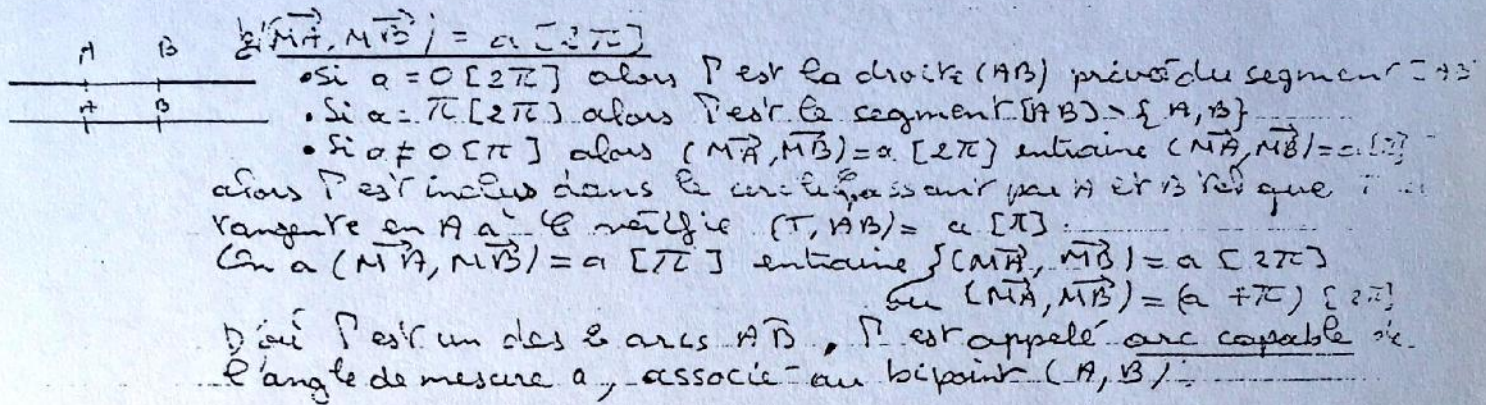 A B b) (MA→, MB→) = a [2π]
• Si a = 0 [2π] alors Γ est la droite (AB) privé du segment [AB
A B • Si a = π [2π] alors Γ est le segment [AB] \ {A, B}
• Si a ≠ 0 [π] alors (MA→, MB→) = a [2π] entraine (MA→, MB→) = a [π]
alors Γ est inclus dans le cercle passant par A et B tel que T
tangente en A à C vérifie (T, AB) = a [π].
On a (MA→, MB→) = a [π] entraine { (MA→, MB→) = a [2π]
ou (MA→, MB→) = (a + π) [2π]
D'où Γ est un des 2 arcs AB, Γ est appelé arc capable de
l'angle de mesure a, associé au bipoint (A, B).